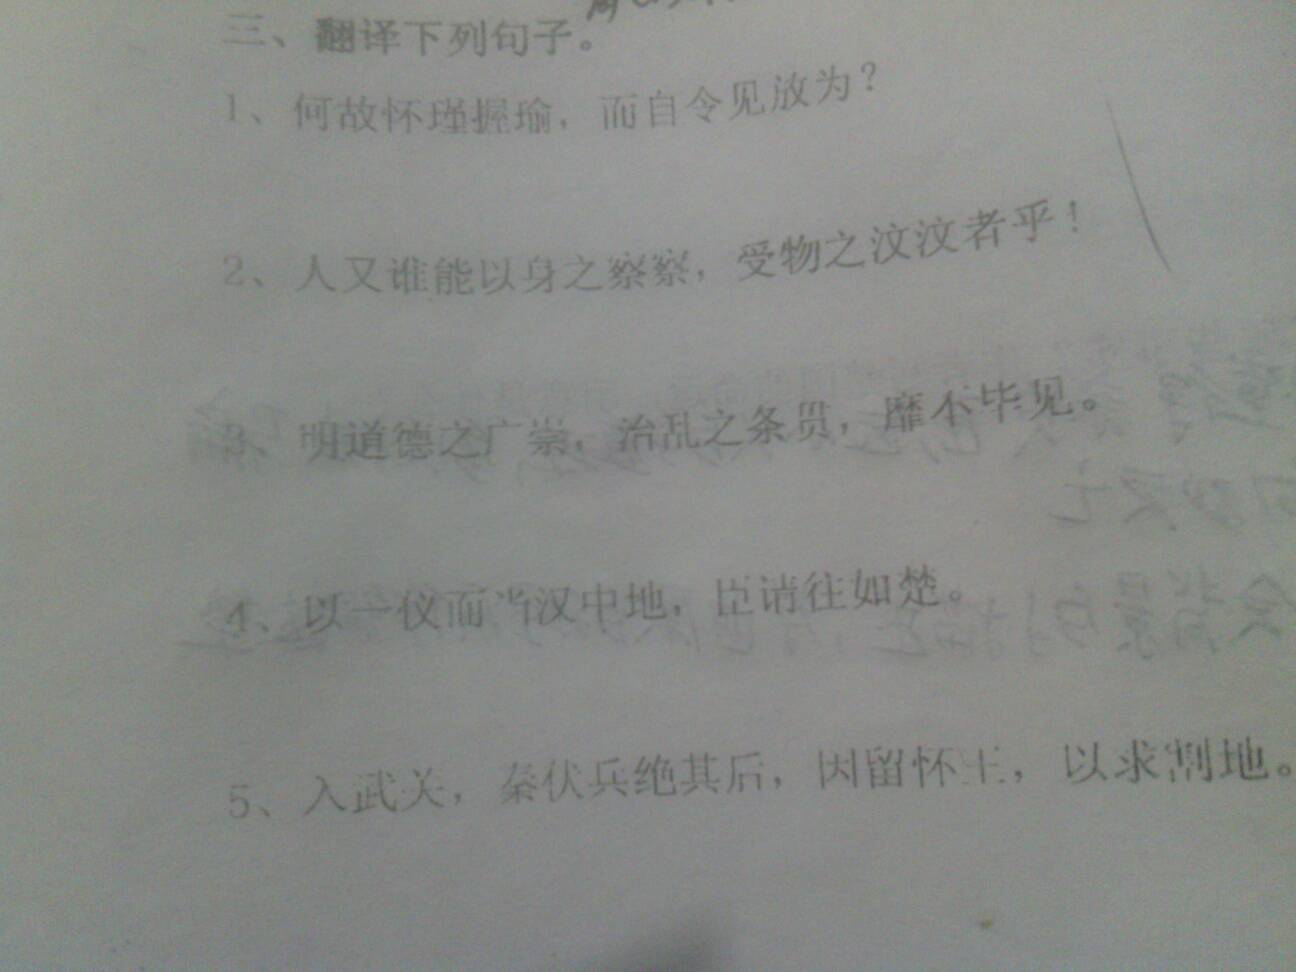 三、翻译下列句子。
1、何故怀瑾握瑜，而自令见放为？
2、人又谁能以身之察察，受物之汶汶者乎！
3、明道德之广崇，治乱之条贯，靡不毕见。
4、以一仪而当汉中地，臣请往如楚。
5、入武关，秦伏兵绝其后，因留怀王，以求割地。